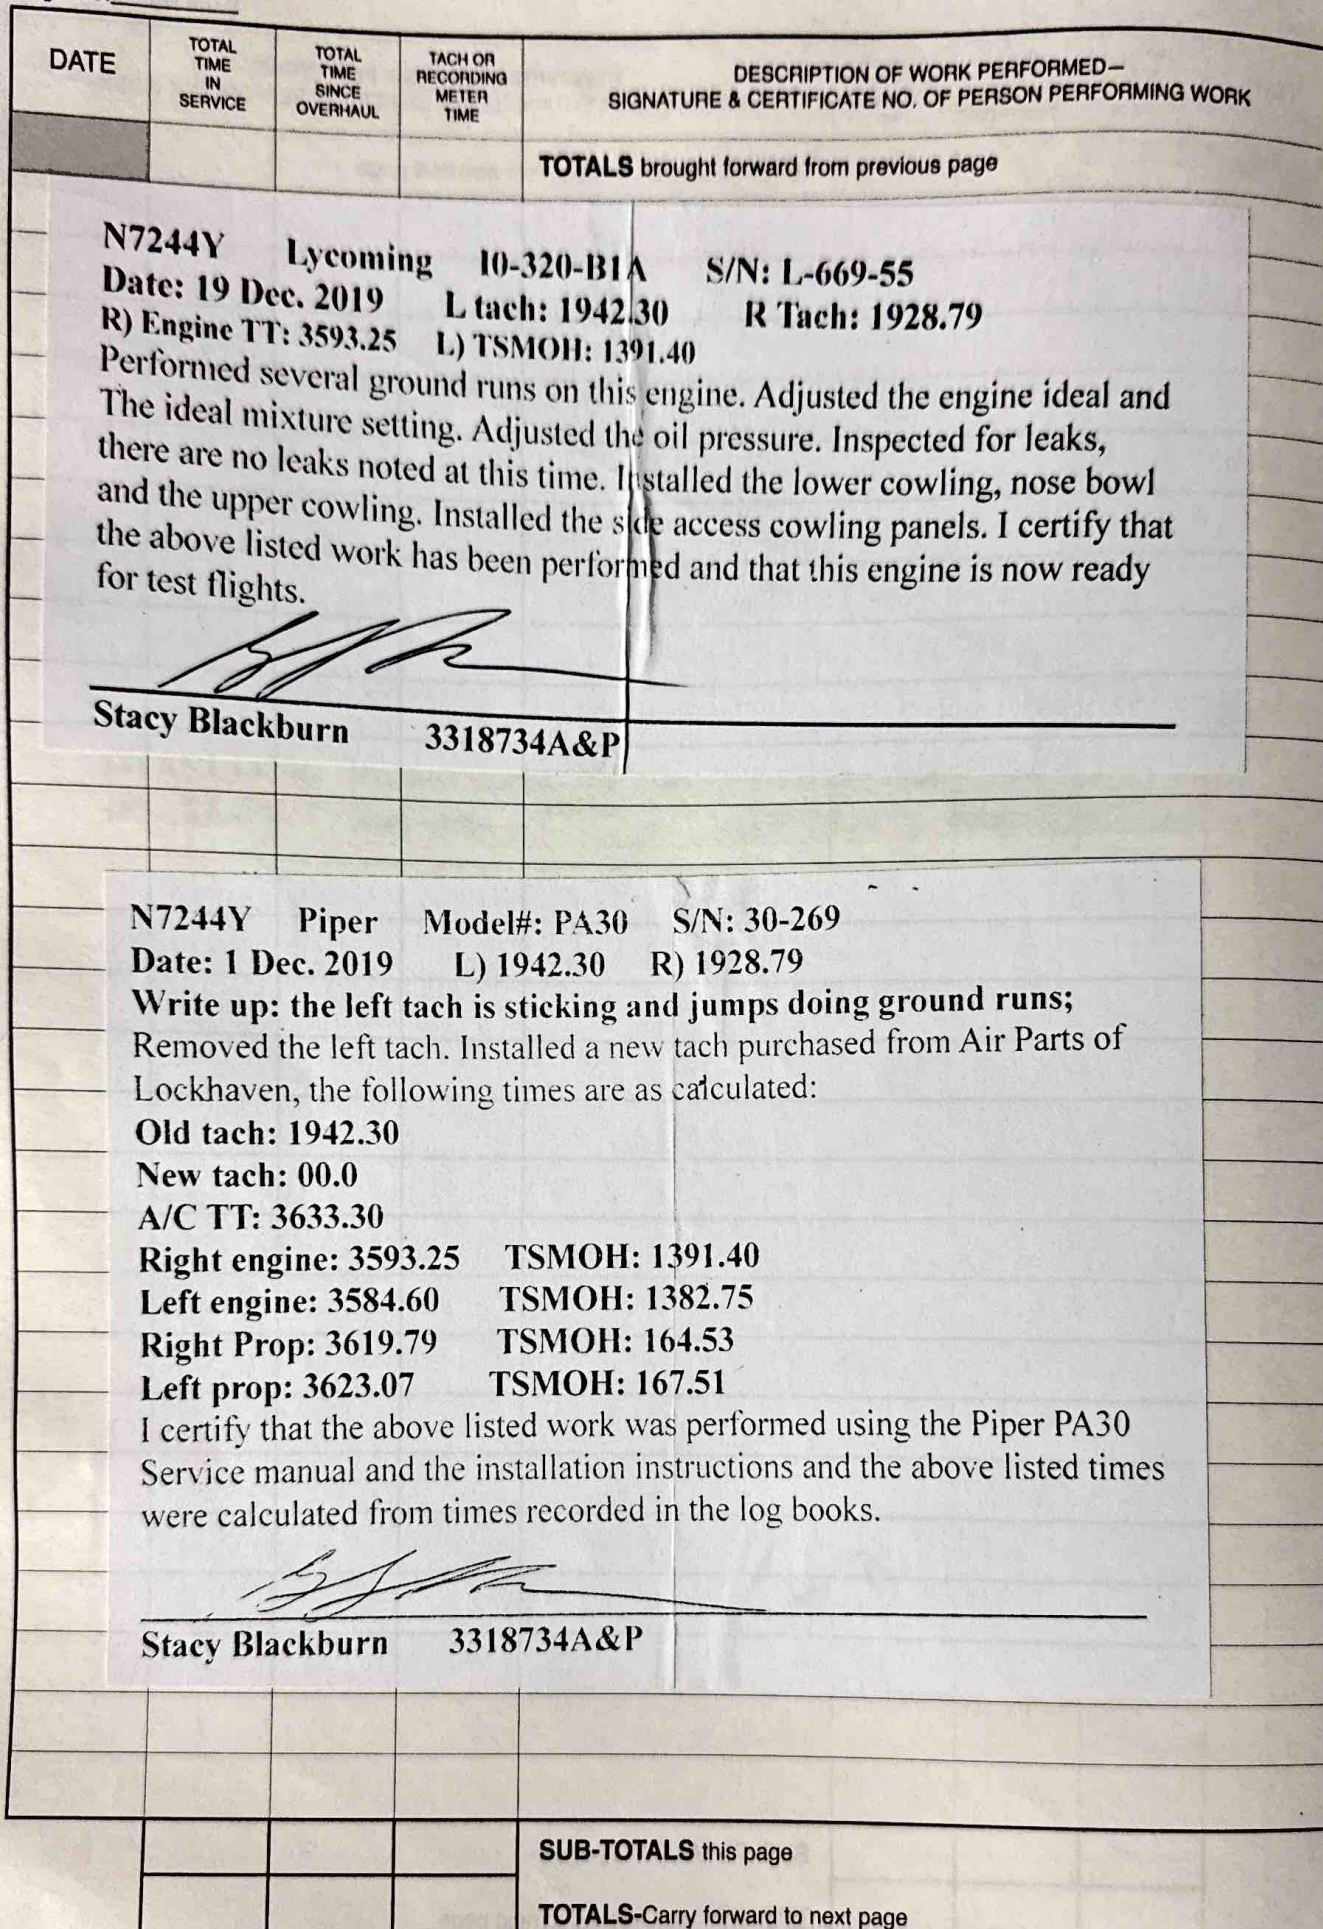 DATE
TOTAL
TIME
IN
SERVICE
TOTAL
TIME
SINCE
OVERHAUL
TACH OR
RECORDING
METER
TIME
DESCRIPTION OF WORK PERFORMED—
SIGNATURE & CERTIFICATE NO. OF PERSON PERFORMING WORK
TOTALS brought forward from previous page
N7244Y Lycoming IO-320-B1A S/N: L-669-55
Date: 19 Dec. 2019 L tach: 1942.30 R Tach: 1928.79
R) Engine TT: 3593.25 L) TSMOH: 1391.40
Performed several ground runs on this engine. Adjusted the engine ideal and
The ideal mixture setting. Adjusted the oil pressure. Inspected for leaks,
there are no leaks noted at this time. Installed the lower cowling, nose bowl
and the upper cowling. Installed the side access cowling panels. I certify that
the above listed work has been performed and that this engine is now ready
for test flights.
Stacy Blackburn 3318734A&P
N7244Y Piper Model#: PA30 S/N: 30-269
Date: 1 Dec. 2019 L) 1942.30 R) 1928.79
Write up: the left tach is sticking and jumps doing ground runs;
Removed the left tach. Installed a new tach purchased from Air Parts of
Lockhaven, the following times are as calculated:
Old tach: 1942.30
New tach: 00.0
A/C TT: 3633.30
Right engine: 3593.25 TSMOH: 1391.40
Left engine: 3584.60 TSMOH: 1382.75
Right Prop: 3619.79 TSMOH: 164.53
Left prop: 3623.07 TSMOH: 167.51
I certify that the above listed work was performed using the Piper PA30
Service manual and the installation instructions and the above listed times
were calculated from times recorded in the log books.
Stacy Blackburn 3318734A&P
SUB-TOTALS this page
TOTALS-Carry forward to next page